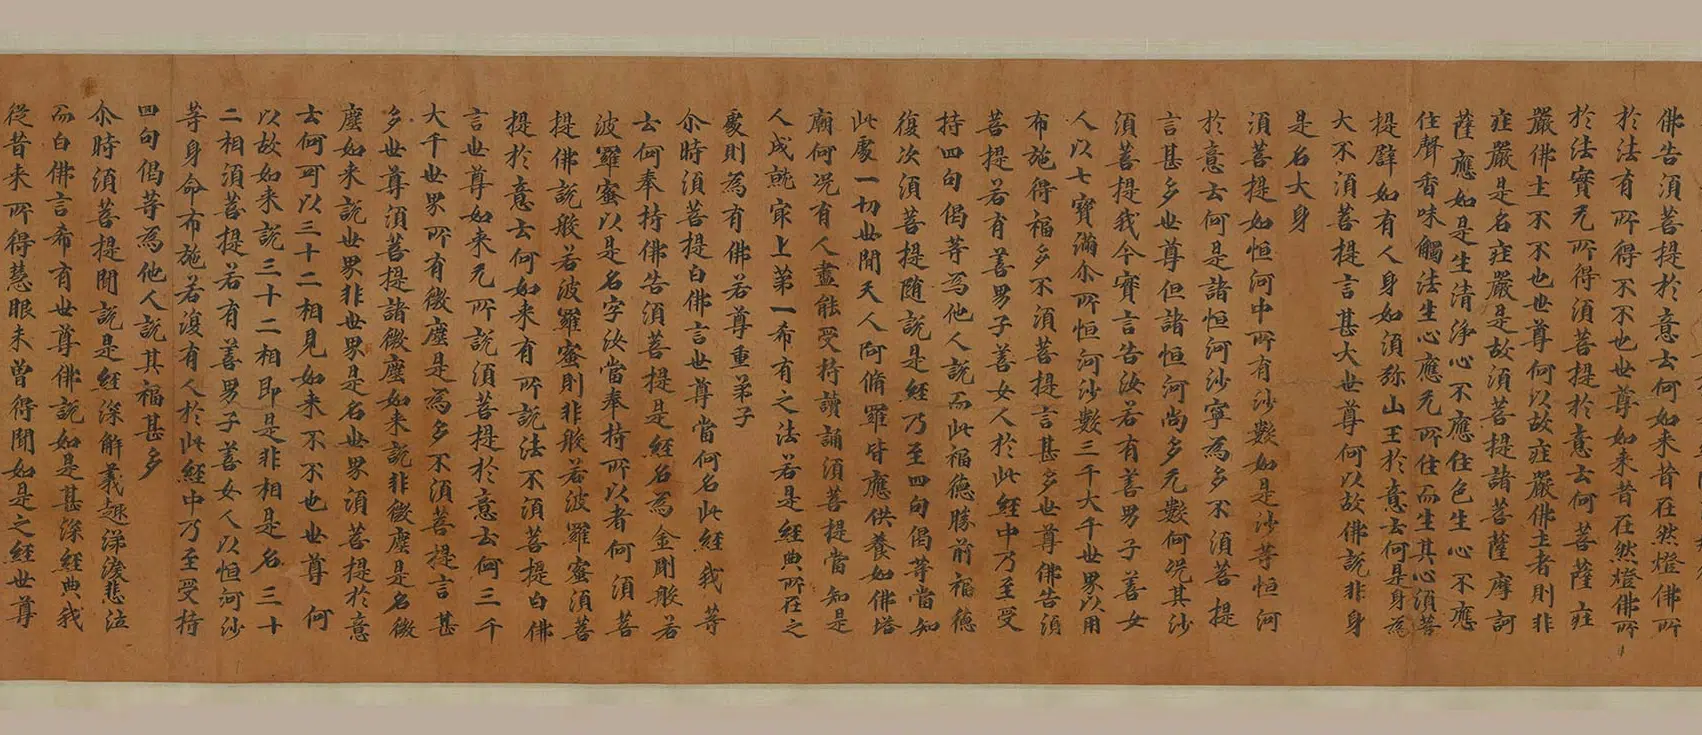 佛告須菩提於意云何如来昔在然燈佛所
於法有所得不不也世尊如来昔在然燈佛所
於法實无所得須菩提於意云何菩薩莊
嚴佛土不不也世尊何以故莊嚴佛土者則非
莊嚴是名莊嚴是故須菩提諸菩薩摩訶
薩應如是生清淨心不應住色生心不應
住聲香味觸法生心應无所住而生其心須菩
提辟如有人身如須弥山王於意云何是身為
大不須菩提言甚大世尊何以故佛說非身
是名大身
須菩提如恒河中所有沙數如是沙等恒河
於意云何是諸恒河沙寧為多不須菩提
言甚多世尊但諸恒河尚多无數何况其沙
須菩提我今實言告汝若有善男子善女
人以七寶滿尒所恒河沙數三千大千世界以用
布施得福多不須菩提言甚多世尊佛告須
菩提若有善男子善女人於此經中乃至受
持四句偈等為他人說而此福德勝前福德
復次須菩提随說是經乃至四句偈等當知
此處一切世間天人阿脩羅皆應供養如佛塔
廟何况有人盡能受持讀誦須菩提當知是
人成就㝡上第一希有之法若是經典所在之
處則為有佛若尊重弟子
尒時須菩提白佛言世尊當何名此經我等
云何奉持佛告須菩提是經名為金剛般若
波羅蜜以是名字汝當奉持所以者何須菩
提佛說般若波羅蜜則非般若波羅蜜須菩
提於意云何如来有所說法不須菩提白佛
言世尊如来无所說須菩提於意云何三千
大千世界所有微塵是為多不須菩提言甚
多世尊須菩提諸微塵如来說非微塵是名微
塵如来說世界非世界是名世界須菩提於意
云何可以三十二相見如来不不也世尊何
以故如来說三十二相即是非相是名三十
二相須菩提若有善男子善女人以恒河沙
等身命布施若復有人於此經中乃至受持
四句偈等為他人說其福甚多
尒時須菩提聞說是經深解義趣涕淚悲泣
而白佛言希有世尊佛說如是甚深經典我
從昔来所得慧眼未曾得聞如是之經世尊